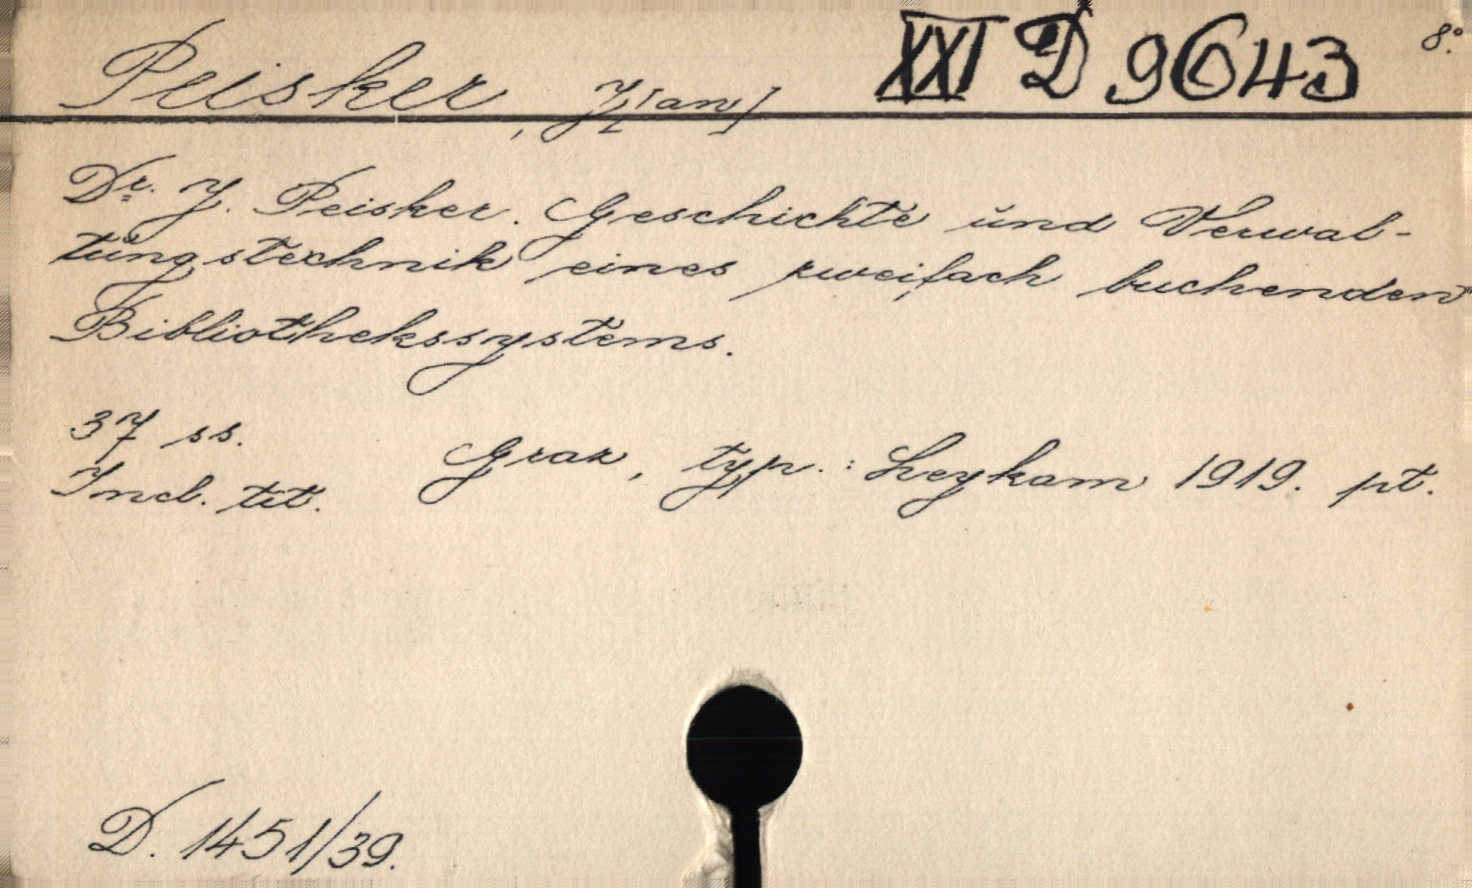 Peisker, J[an] XXI D 9643 8°.
Dr. J. Peisker. Geschichte und Verwal-
tungstechnik eines zweifach buchenden
Bibliothekssystems.
37 ss.
Graz, typ.: Leykam 1919. pt.
Incl. tit.
D. 1451/39.